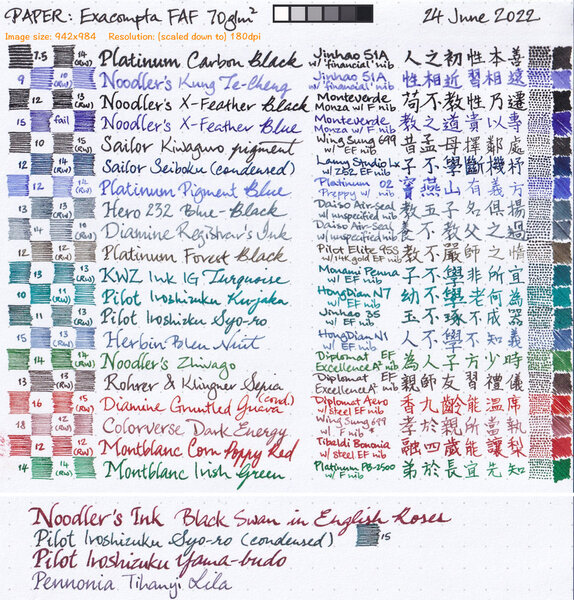 PAPER: Exacompta FAF 70g/m² 24 June 2022
Image size: 942x984 Resolution: (scaled down to) 180dpi
7.5 14 (RW) Platinum Carbon Black Jinhao 51A w/ 'financial' nib 人之初性本善
9 10 (RW) Noodler's Kung Te-Cheng Jinhao 51A w/ 'financial' nib 性相近習相遠
12 13 (RW) Noodler's X-Feather Black Monteverde Monza w/ F nib 苟不教性乃遷
15 fail Noodler's X-Feather Blue Monteverde Monza w/ F nib 教之道貴以專
10 15 Sailor Kiwaguro pigment Wing Sung 699 w/ EF nib 昔孟母擇鄰處
12 14 (RW) Sailor Seiboku (condensed) Lamy Studio Lx w/ Z52 EF nib 子不學斷機杼
12 (RW) Platinum Pigment Blue Platinum 02 Preppy w/ nib 竇燕山有義方
13 13 (RW) Hero 232 Blue-Black Daiso Air-seal w/unspecified nib 教五子名俱揚
14 (RW) Diamine Registrar's Ink Daiso Air-seal w/unspecified nib 養不教父之過
12 12 (RW) Platinum Forest Black Pilot Elite 95S w/14K gold EF nib 教不嚴師之惰
13 13 (RW) KWZ Ink IG Turquoise Monami Penna w/ F nib 子不學非所宜
10 11 (RW) Pilot Iroshizuku Kujaku HongDian N7 w/ EF nib 幼不學老何為
11 11 (RW) Pilot Iroshizuku Syo-ro Jinhao 35 w/ EF nib 玉不琢不成器
15 13 (RW) Herbin Bleu Nuit HongDian N1 w/ EF nib 人不學不知義
14 14 (RW) Noodler's Zhivago Diplomat EF Excellence A+ nib 為人子方少時
13 13 (RW) Rohrer & Klingner Sepia Diplomat EF Excellence A+ nib 親師友習禮儀
16 15 (RW) Diamine Gruntled Guava (cond.) Diplomat Aero w/ steel EF nib 香九齡能溫席
18 12 (RW) Colorverse Dark Energy Wing Sung 699 w/ EF nib 孝於親所當執
12 12 (RW) Montblanc Corn Poppy Red Tibaldi Bononia w/ steel EF nib 融四歲能讓梨
14 14 Montblanc Irish Green Platinum PB-2500 w/ F nib 弟於長宜先知
Noodler's Ink Black Swan in English Roses
Pilot Iroshizuku Syo-ro (condensed) 15
Pilot Iroshizuku Yama-budo
Pennonia Tihanyi Lila